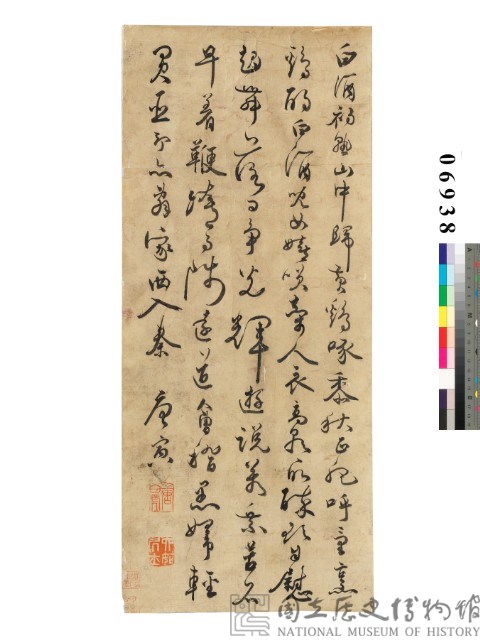 白酒初熟山中歸黃雞啄黍秋正肥呼童烹
雞酌白酒兒女嬉笑牽人衣高歌取醉欲自慰
起舞落日爭光輝遊說萬乘苦不
早着鞭跨馬涉遠道會稽愚婦輕
買臣余亦辭家西入秦 唐寅
06938
國立歷史博物館
NATIONAL MUSEUM OF HISTORY